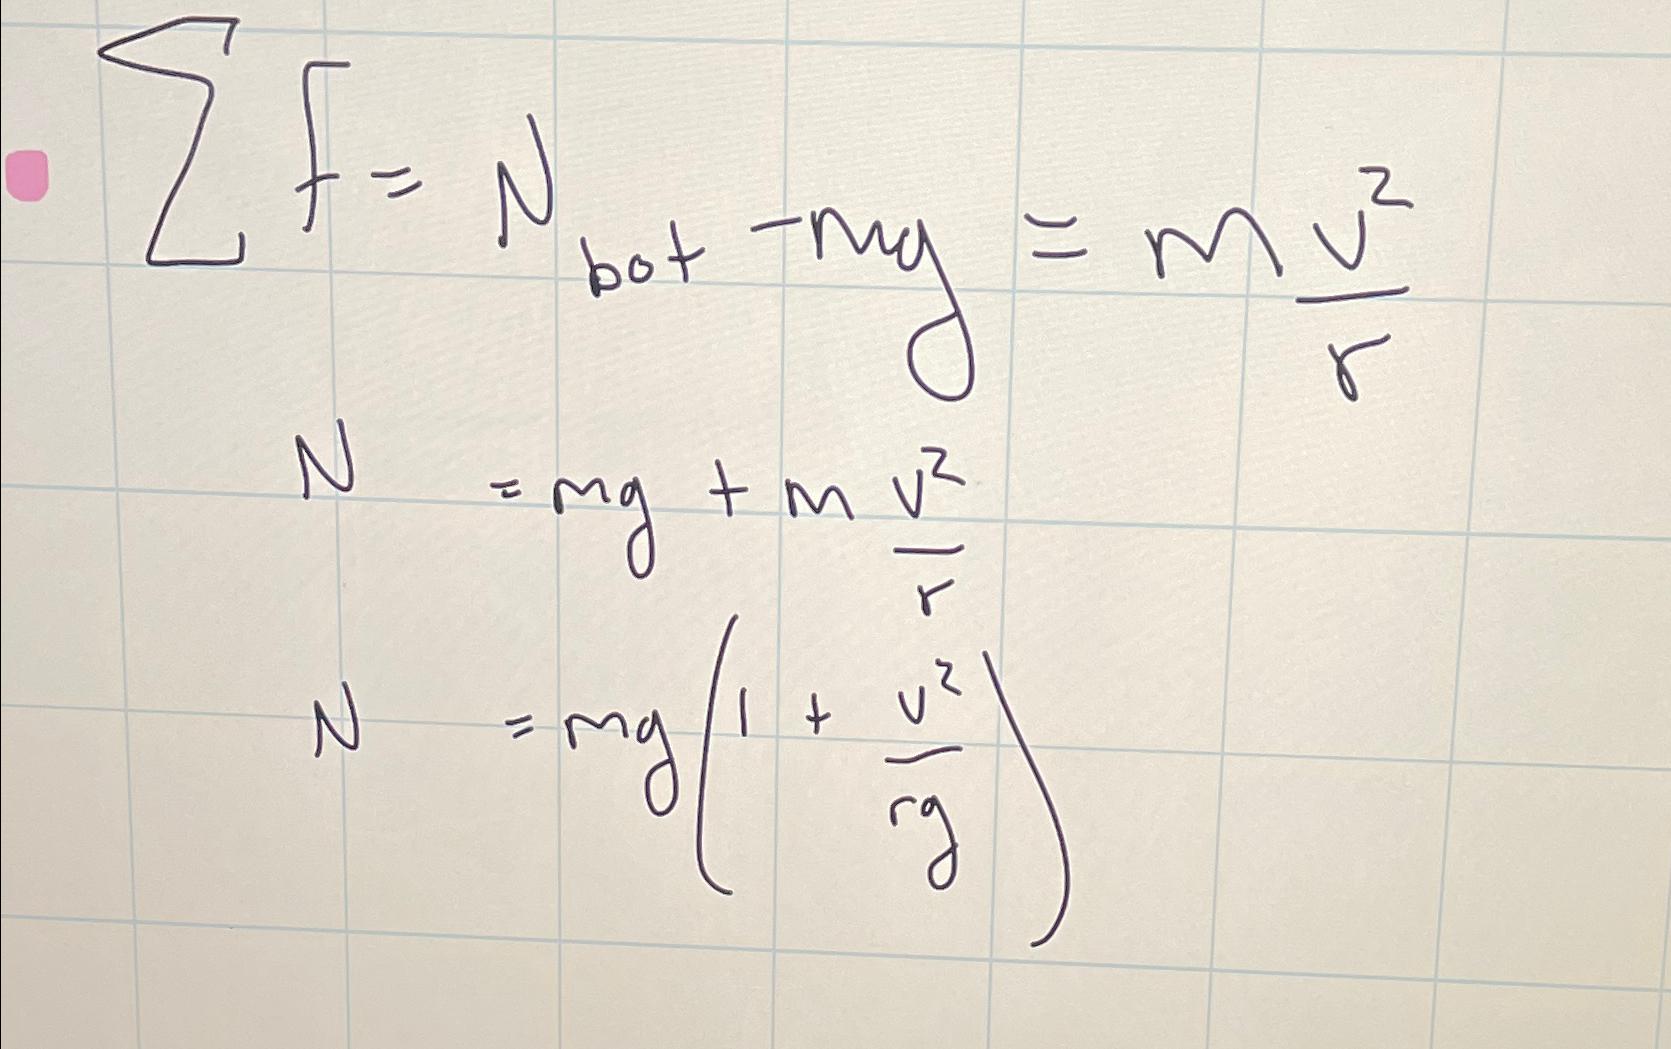 ∑F = N_bot - mg = m v²/r
N = mg + m v²/r
N = mg(1 + v²/rg)